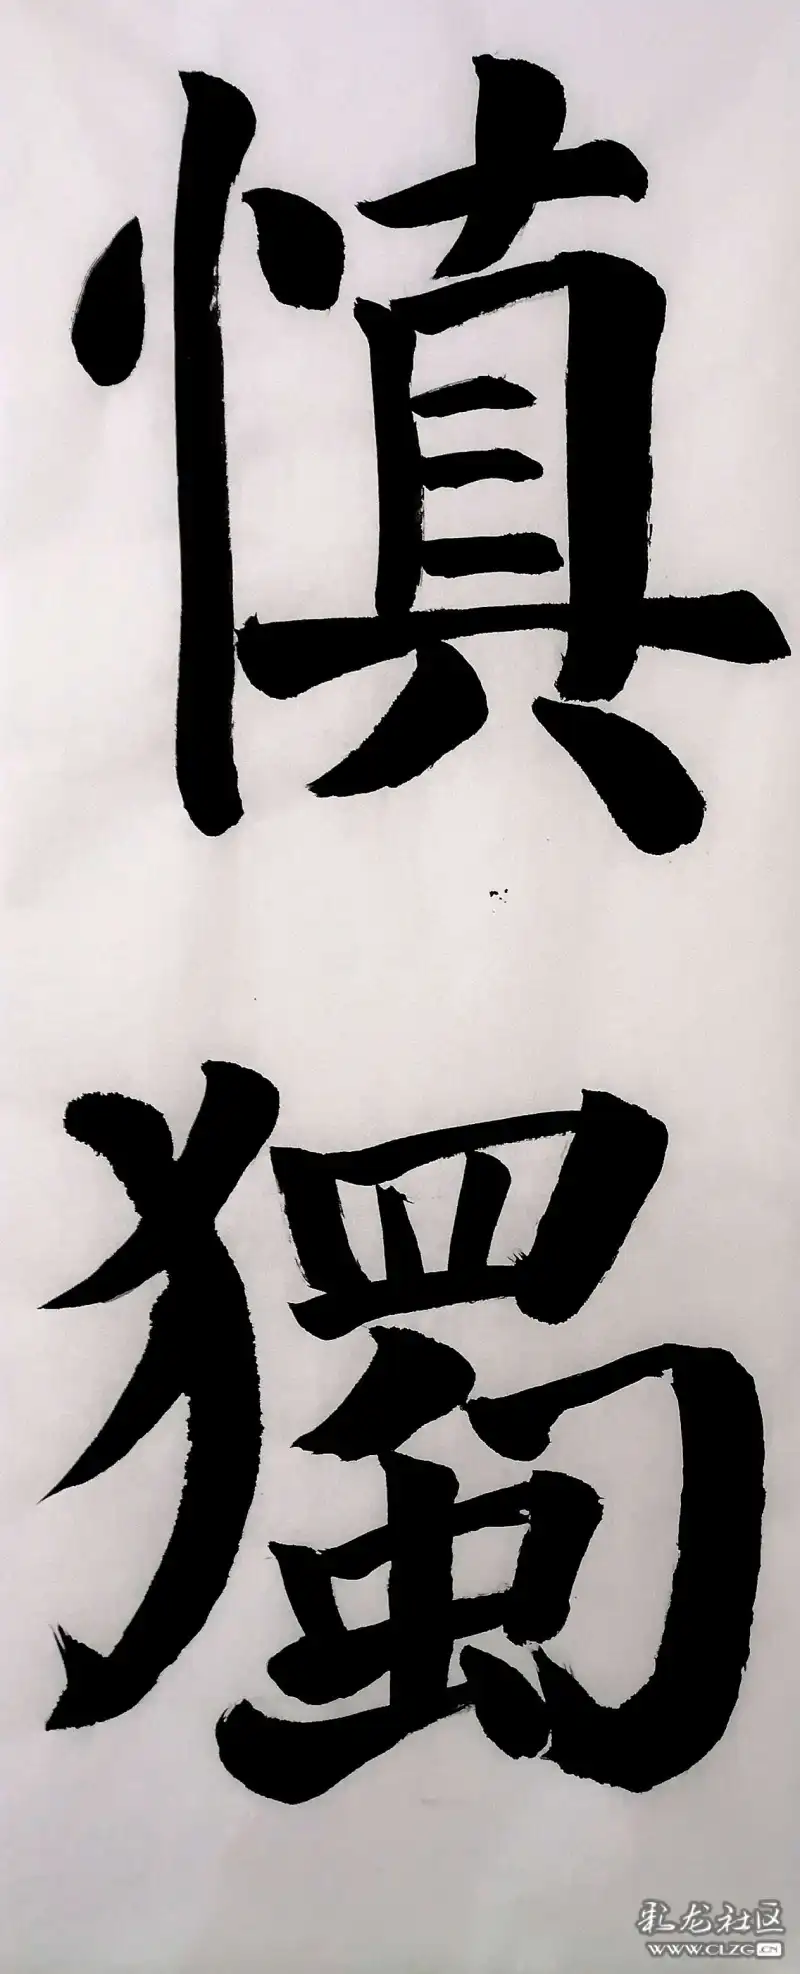 慎
獨
彩龙社区
WWW.CLZG.CN